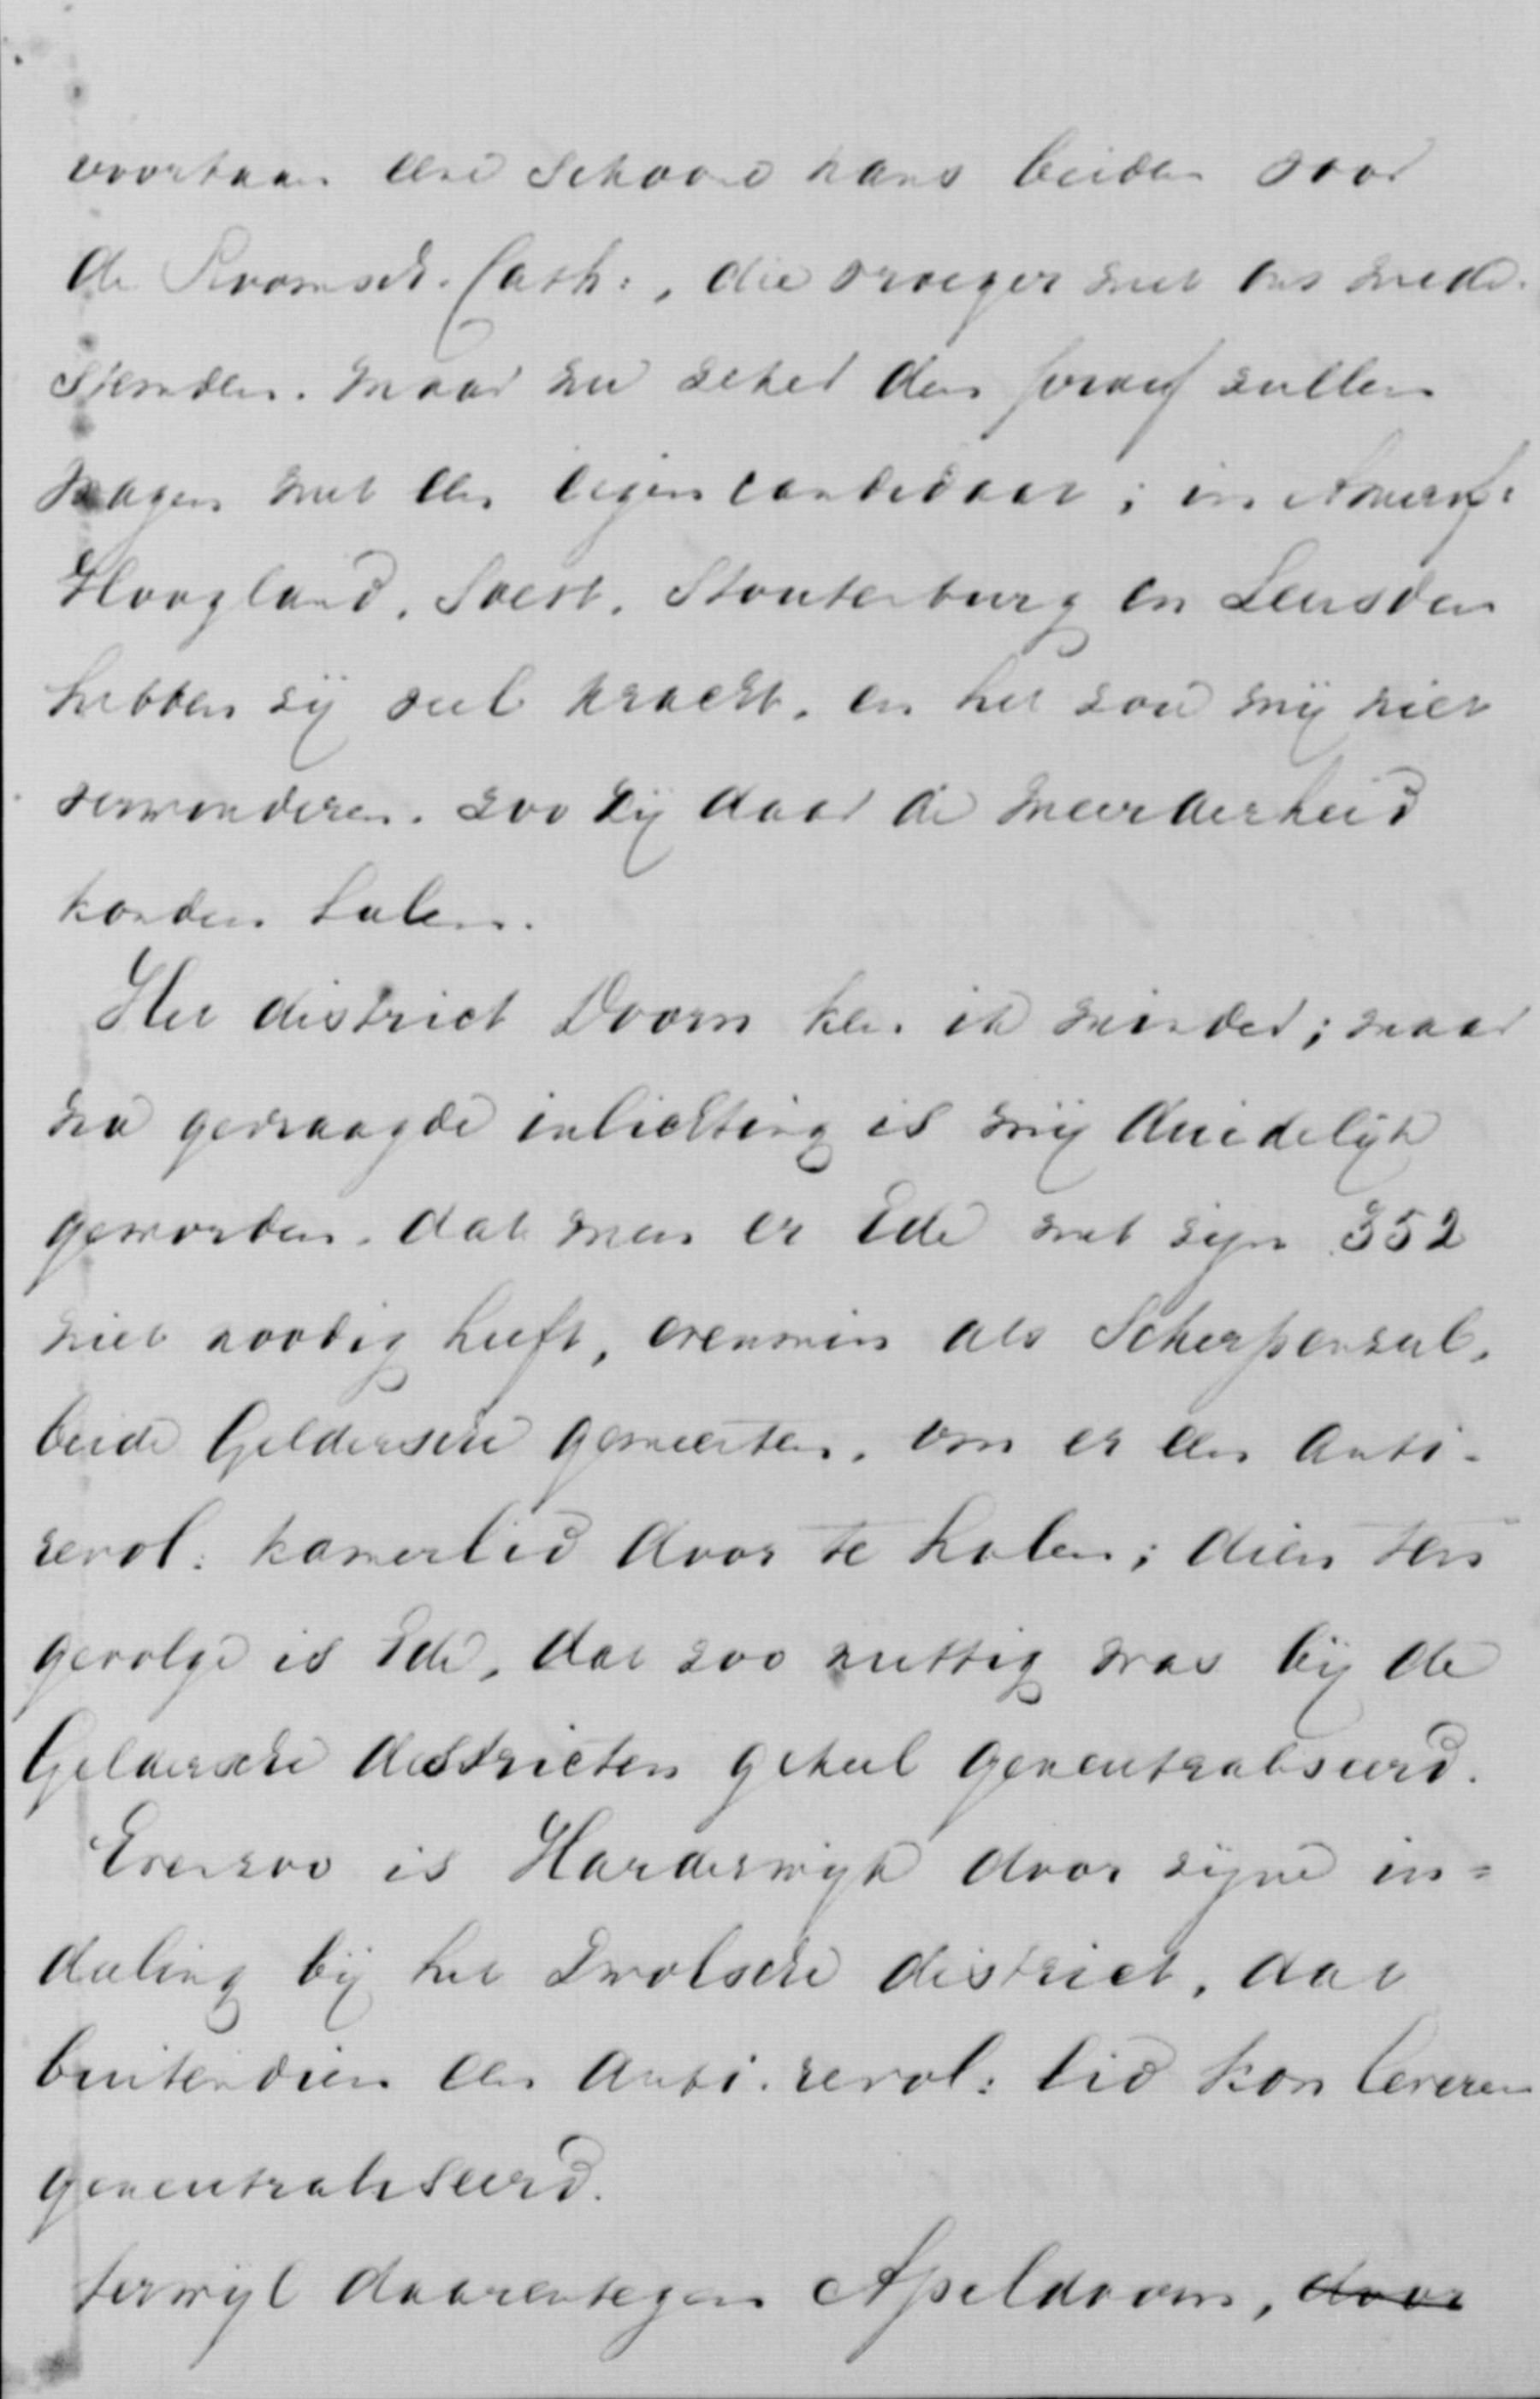 voortaan eene schoone kans bieden voor
de Roomsch. Cath:, die vroeger met ons mede-
stemden. maar nu zeker den proef zullen
wagen met een eigen candidaat; in Amersf:
Hoogland, Soest, Stoutenburg en Leusden
hebben zij veel kracht, en het zou mij niet
verwonderen. zoo zij daar de meerderheid
konden halen.
Het district Doorn ken ik minder; maar
na gevraagde inlichting is mij duidelijk
geworden. dat men er Ede met zijn 352
niet noodig heeft, evenmin als Scherpenzeel,
beide Geldersche gemeenten, om er een anti-
revol: kamerlid door te halen; dien ten
gevolge is Ede, dat zoo nuttig was bij de
Geldersche districten geheel geneutraliseerd.
Evenzoo is Harderwijk door zijne in=
deeling bij het Zwolsche district, dat
buitendien een anti. revol: lid kon leveren
geneutraliseerd.
terwijl daarentegen Apeldoorn, door